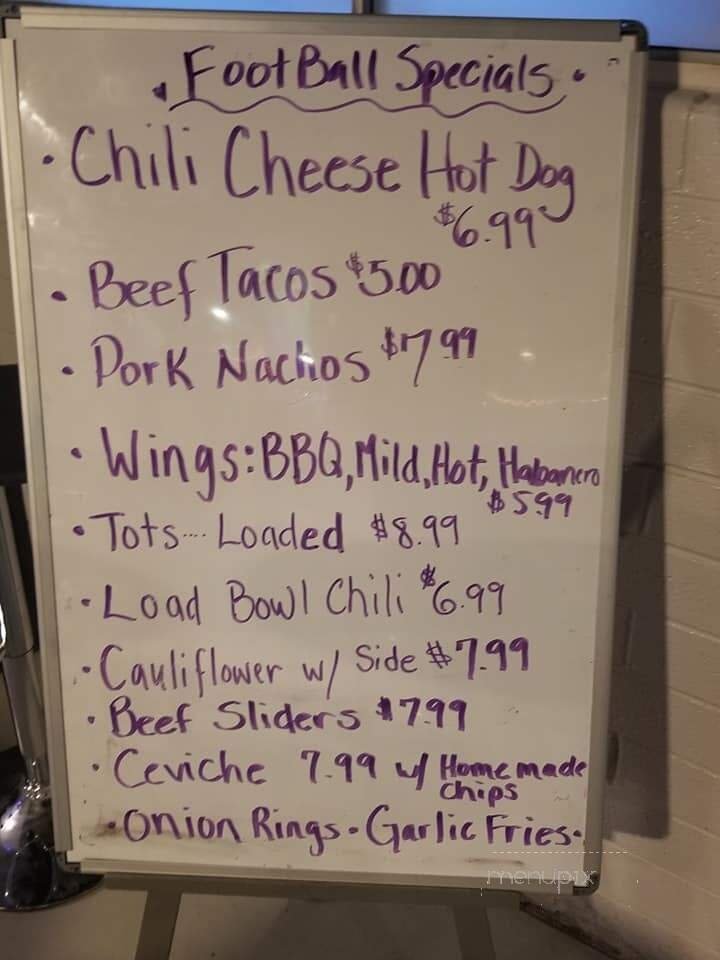 • FootBall Specials •
• Chili Cheese Hot Dog
$6.99
• Beef Tacos $5.00
• Pork Nachos $7.99
• Wings: BBQ, Mild, Hot, Habanero
$5.99
• Tots.... Loaded $8.99
• Load Bowl Chili $6.99
• Cauliflower w/ Side $7.99
• Beef Sliders $7.99
• Ceviche 7.99 w/ Homemade
chips
• Onion Rings • Garlic Fries •
menupix